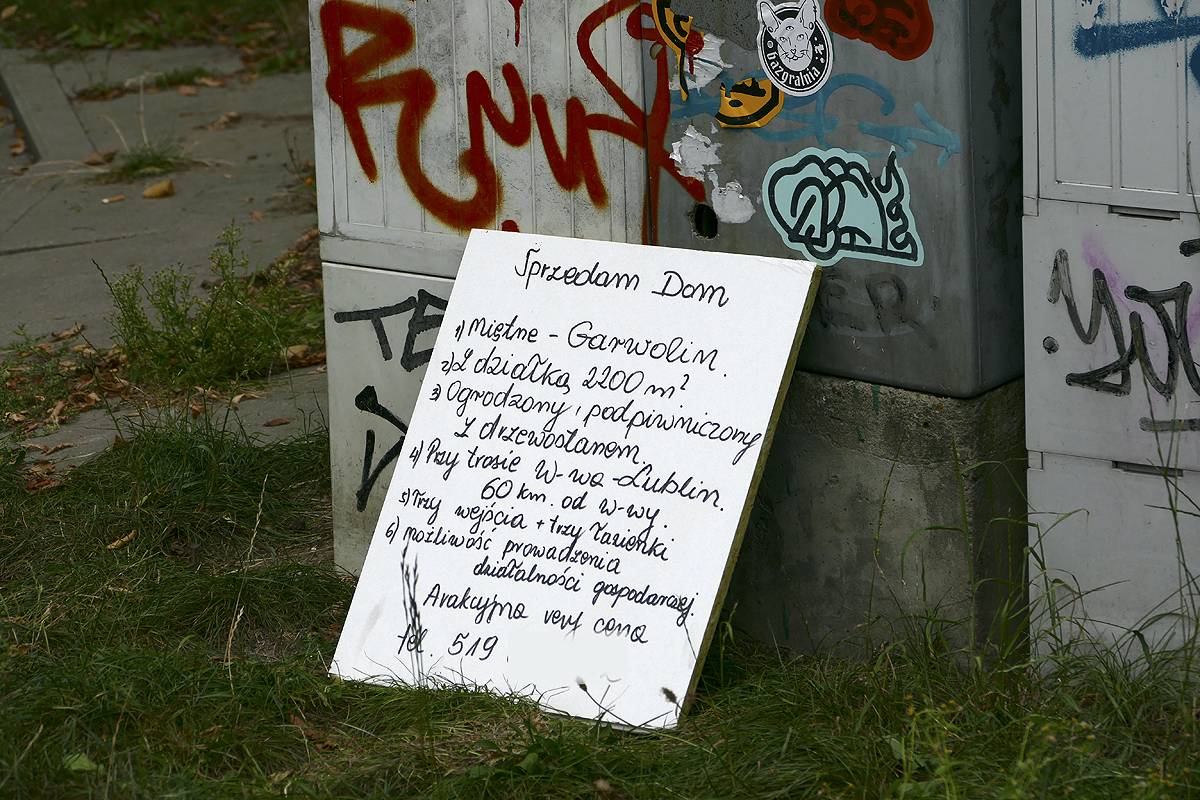 bazgralnia
TE
ER
Sprzedam Dom
1) Miętne - Garwolin.
2) Z działką 2200 m²
3) Ogrodzony, podpiwniczony
z drzewostanem.
4) Przy trasie W-wa-Lublin.
60 km. od w-wy.
5) Trzy wejścia + trzy łazienki
6) możliwość prowadzenia
działalności gospodarczej.
Atrakcyjna very cena
tel. 519